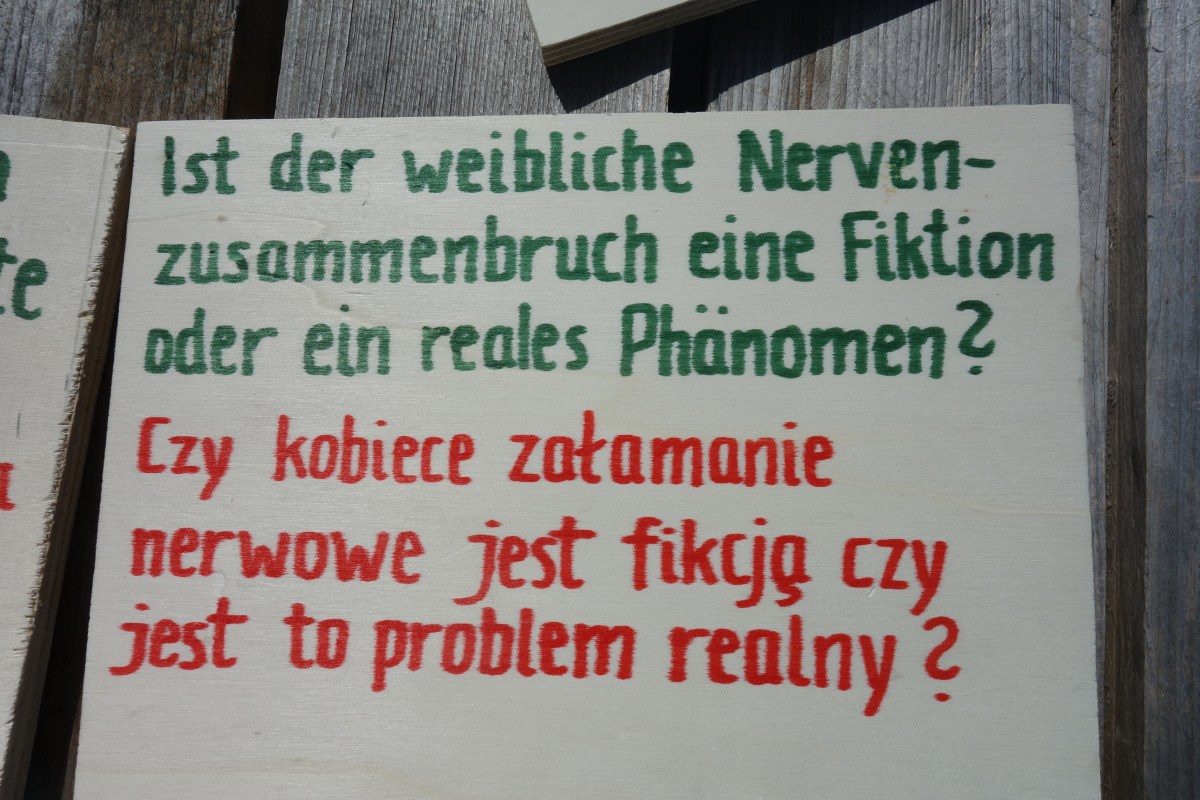 Ist der weibliche Nerven-
zusammenbruch eine Fiktion
oder ein reales Phänomen?
Czy kobiece załamanie
nerwowe jest fikcją czy
jest to problem realny?